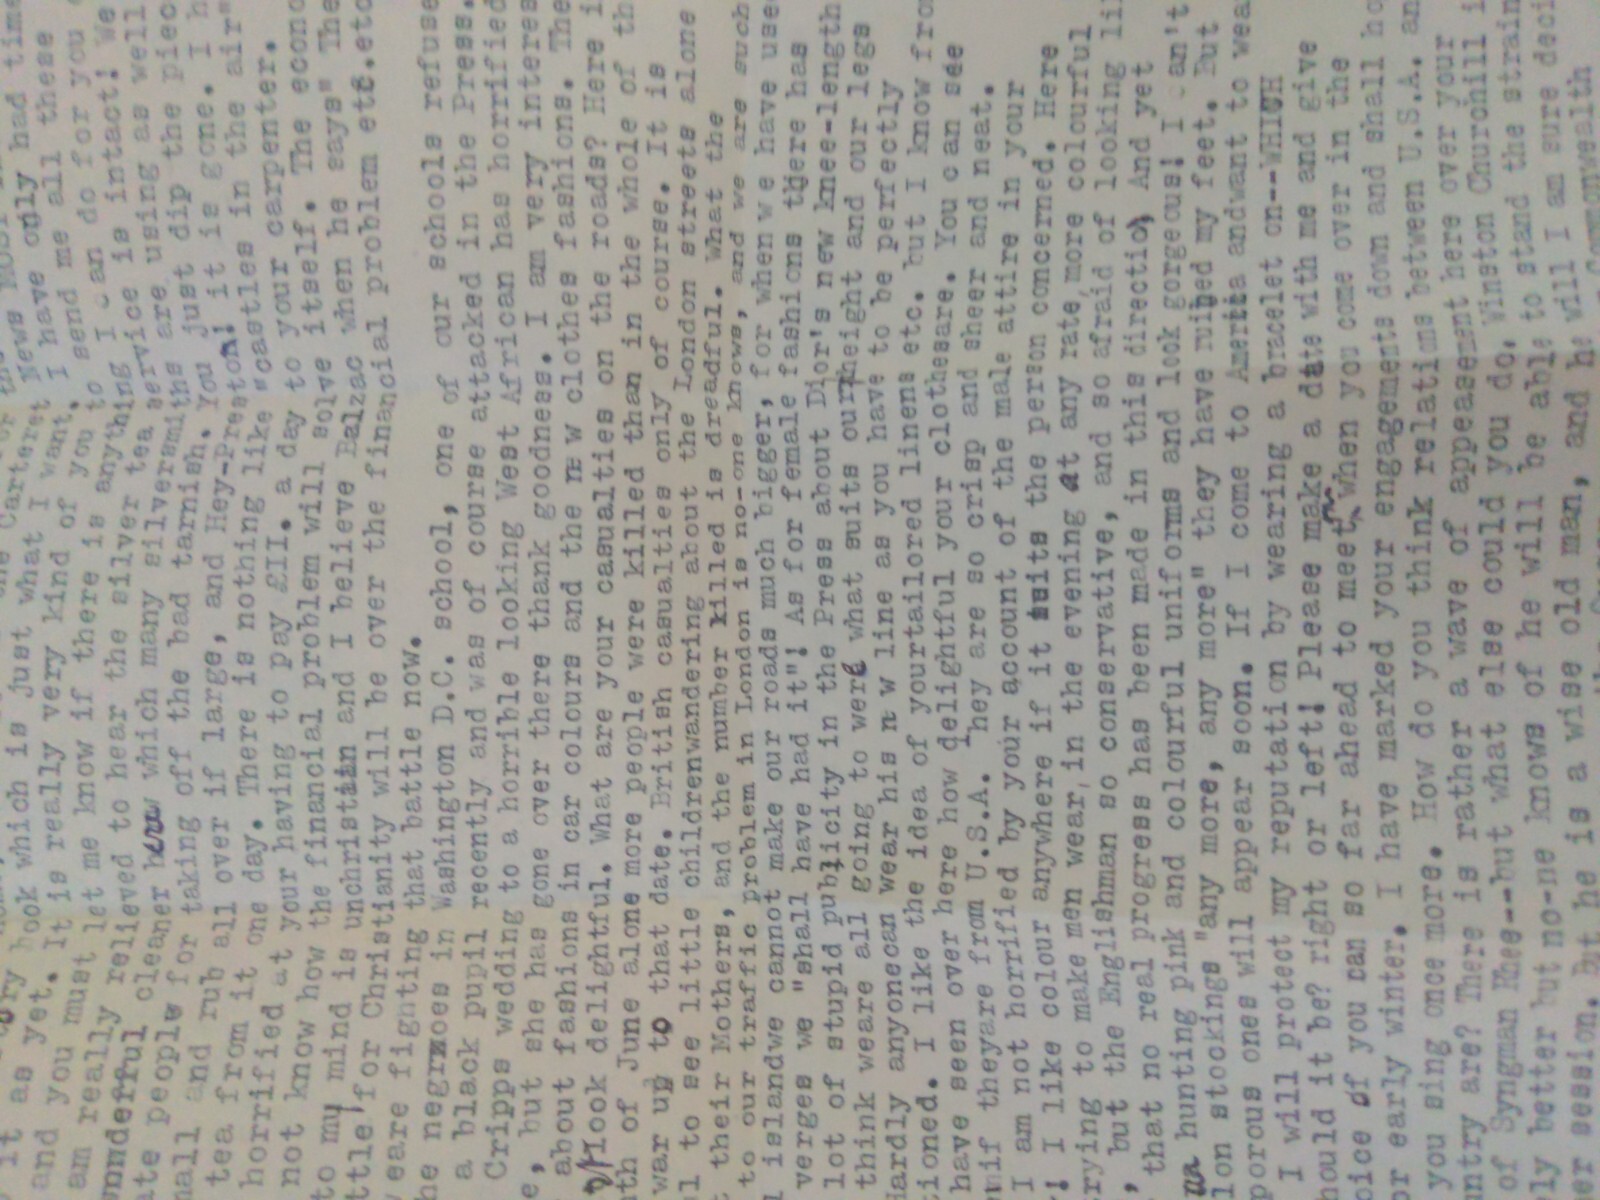 it as yet. It is really very kind of you to send me all these
and you must let me know if there is anything I can do for you
am really relieved to hear the silver tea service is intact! We
wonderful cleaner here which many silversmiths are using as well
ate people for taking off the bad tarnish. You just dip the piec
mall and rub all over if large, and Hey-Preston! it is gone. I h
tea from it one day. There is nothing like "castles in the air"
horrified at your having to pay £II. a day to your carpenter.
not know how the financial problem will solve itself. The econo
to my mind is unchristian and I believe Balzac when he says" The
ttle for Christianity will be over the financial problem etc.etc
eare fighting that battle now.
he negroes in Washington D.C. school, one of our schools refuse
a black pupil recently and was of course attacked in the Press.
Cripps wedding to a horrible looking West African has horrified
e, but she has gone over there thank goodness. I am very interes
about fashions in car colours and the new clothes fashions. The
look delightful. What are your casualties on the roads? Here i
th of June alone more people were killed than in the whole of th
war up to that date. British casualties only of course. It is
l to see little childrenwandering about the London streets alone
their Mothers, and the number killed is dreadful. What the
to our traffic problem in London is no-one knows, and we are such
l islandwe cannot make our roads much bigger, for when we have use
verges we "shall have had it"! As for female fashions there has
lot of stupid publicity in the Press about Dior's new knee-length
think weare all going to were what suits our height and our legs
ardly anyonecan wear his n w line as you have to be perfectly
tioned. I like the idea of yourtailored linens etc. but I know from
have seen over here how delightful your clothesare. You can see
if theyare from U.S.A. They are so crisp and sheer and neat.
I am not horrified by your account of the male attire in your
! I like colour anywhere if it suits the person concerned. Here
rying to make men wear, in the evening at any rate, more colourful
, but the Englishman so conservative, and so afraid of looking li
, that no real progress has been made in this direction, And yet
hunting pink and colourful uniforms and look gorgeous! I can't
lon stockings "any more, any more" they have ruined my feet. But
porous ones will appear soon. If I come to America andwant to wea
I will protect my reputation by wearing a bracelet on--WHICH
hould it be? right or left! Please make a date with me and give
oice of you can so far ahead to meet, when you come over in the
or early winter. I have marked your engagements down and shall ho
you sing once more. How do you think relations between U.S.A. an
ntry are? There is rather a wave of appeasement here over your
of Syngman Rhee--but what else could you do, Winston Churchill i
ly better but no-ne knows of he will be able to stand the strain
er session. but he is a wise old man, and he will I am sure deci